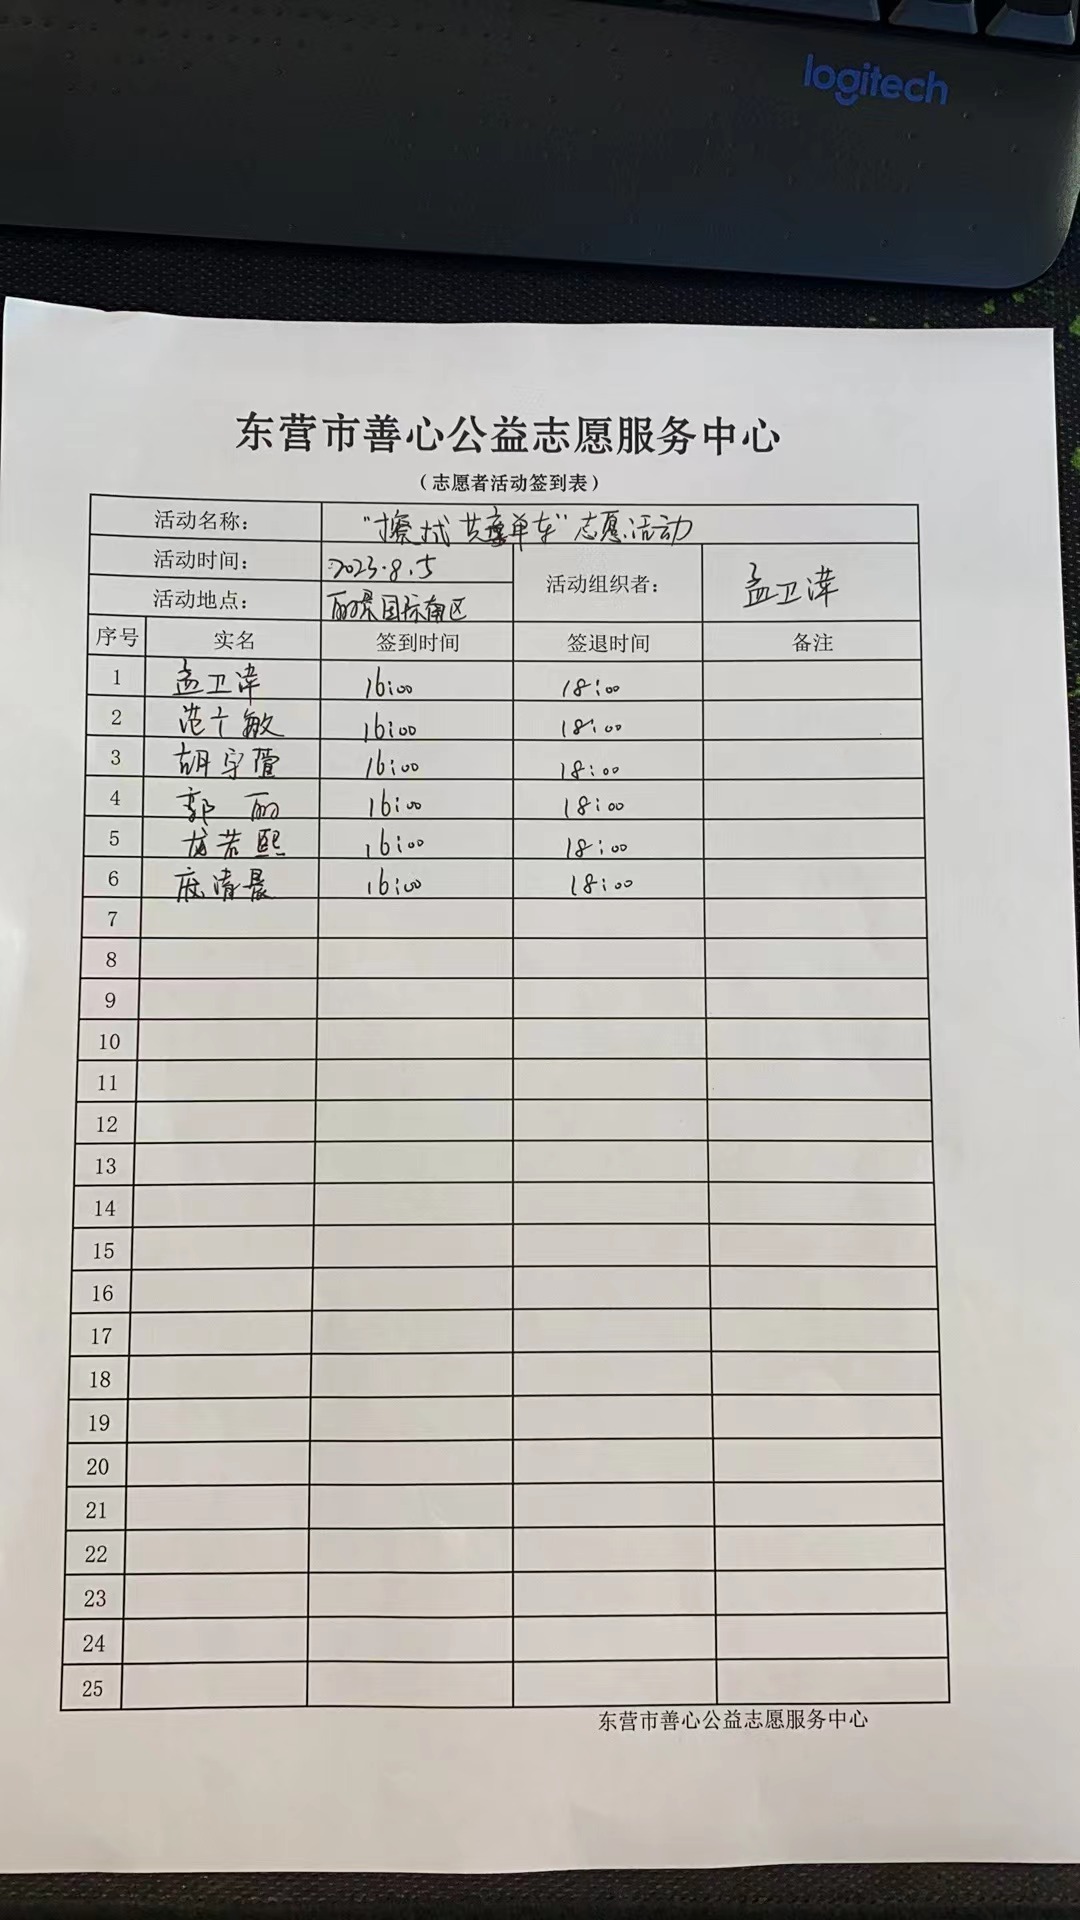 logitech
东营市善心公益志愿服务中心
（志愿者活动签到表）
活动名称： “擦拭共享单车”志愿活动
活动时间： 2023.8.5 活动组织者： 孟卫泽
活动地点： 丽景国际南区
序号 实名 签到时间 签退时间 备注
1 孟卫泽 16:00 18:00
2 范 敏 16:00 18:00
3 胡宇萱 16:00 18:00
4 郭丽 16:00 18:00
5 龙若熙 16:00 18:00
6 清晨 16:00 18:00
7
8
9
10
11
12
13
14
15
16
17
18
19
20
21
22
23
24
25
东营市善心公益志愿服务中心